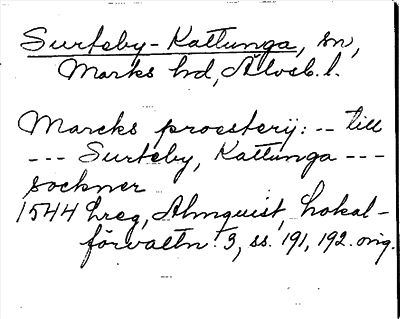 Surteby-Kattunga, sn,
Marks hd, Älvsb. l.
Marcks proesterij: -- till
--- Surteby, Kattunga ---
sockner
1544 hreg, Almquist, Lokal-
förvaltn. 3, ss. 191, 192. orig.